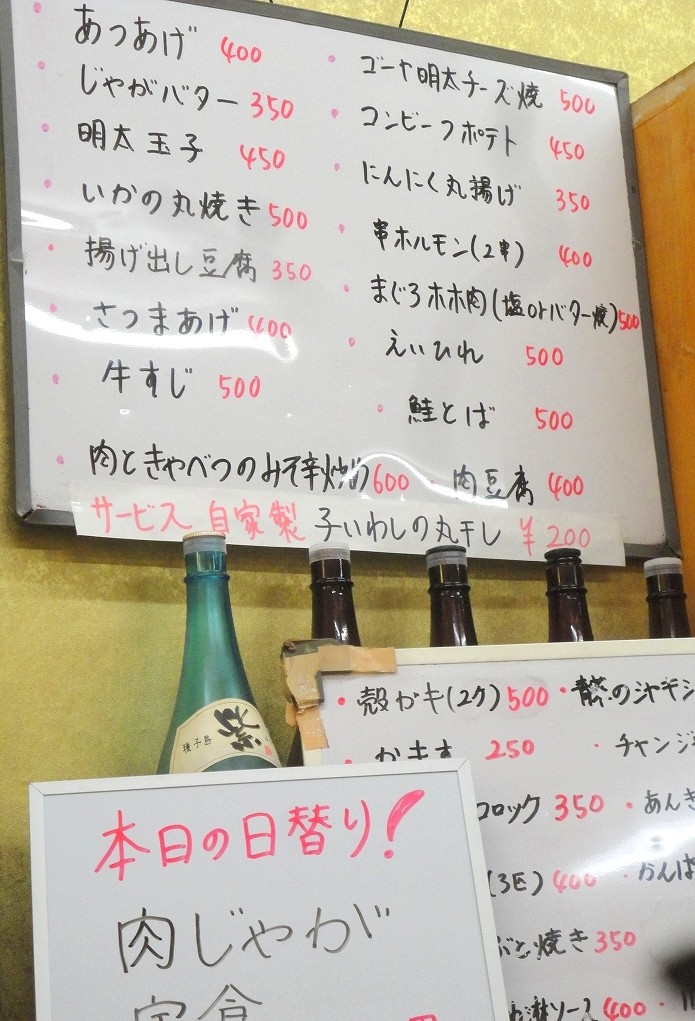 あつあげ 400
じゃがバター 350
明太玉子 450
いかの丸焼き 500
揚げ出し豆腐 350
さつまあげ 400
牛すじ 500
肉ときゃべつのみそ辛炒め 600
ゴーヤ明太チーズ焼 500
コンビーフポテト 450
にんにく丸揚げ 350
串ホルモン(2串) 400
まぐろホホ肉(塩orバター焼) 500
えいひれ 500
鮭とば 500
肉豆腐 400
サービス 自家製 子いわしの丸干し ¥200
種子島 紫
殻がキ(2ケ) 500
かきす 250
コロッケ 350
400
焼き 350
ソース 400
のジャキシ
チャンジ
あんき
かんぱ
本日の日替り!
肉じゃが
定食